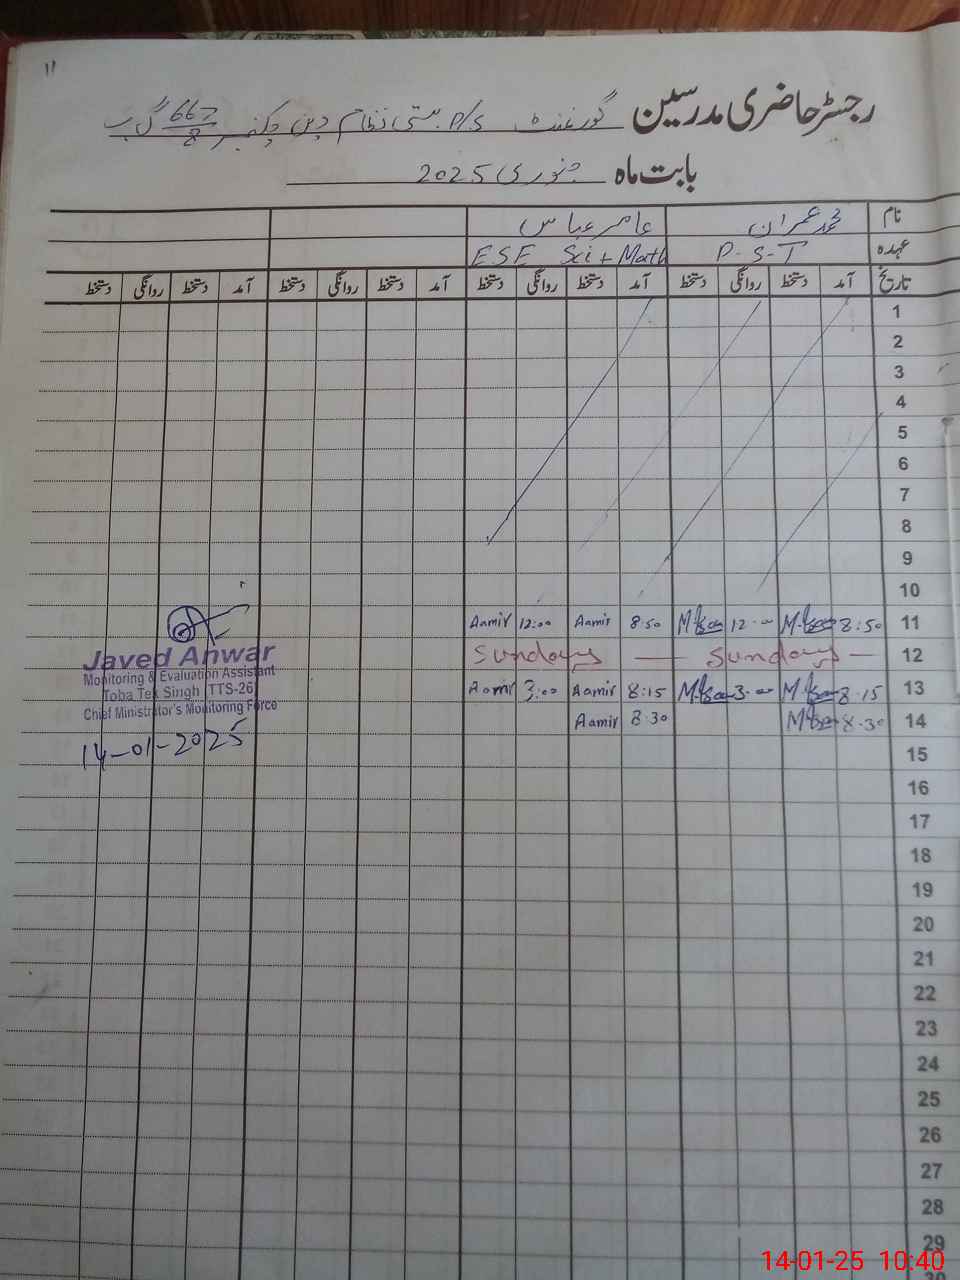 ۱۱
رجسٹر حاضری مدرسین گورنمنٹ P/S بستی نظام دین چکنمبر 667/8 گ ب
بابت ماہ جنوری 2025
نام محمد عمران عامر عباس
عہدہ P-S-T ESE Sci + Math
تاریخ آمد دستخط روانگی دستخط آمد دستخط روانگی دستخط آمد دستخط روانگی دستخط آمد دستخط روانگی دستخط
1
2
3
4
5
6
7
8
9
10
11 8:50 12:00 8:50 Aamir 12:00 Aamir
12 Sunday Sunday
13 8:15 3:00 8:15 Aamir 3:00 Aamir
14 8:30 8:30 Aamir
15
16
17
18
19
20
21
22
23
24
25
26
27
28
29
30
Javed Anwar
Monitoring & Evaluation Assistant
Toba Tek Singh (TTS-26)
Chief Ministrator's Monitoring Force
14-01-2025
14-01-25 10:40